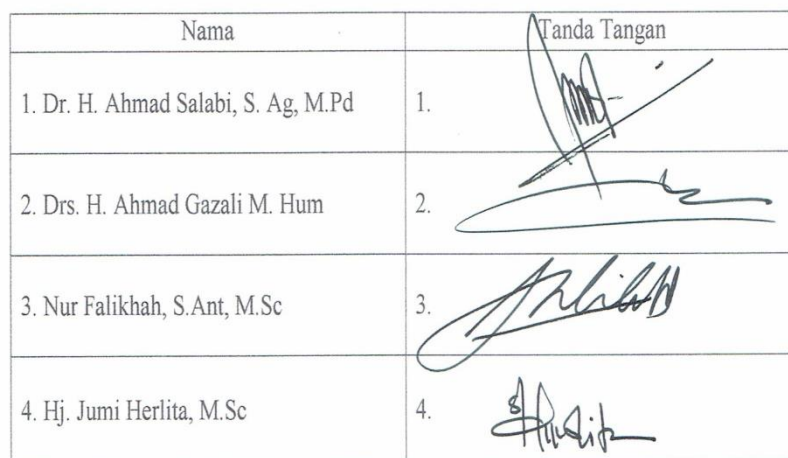 Nama Tanda Tangan
1. Dr. H. Ahmad Salabi, S. Ag, M.Pd 1.
2. Drs. H. Ahmad Gazali M. Hum 2.
3. Nur Falikhah, S.Ant, M.Sc 3.
4. Hj. Jumi Herlita, M.Sc 4.